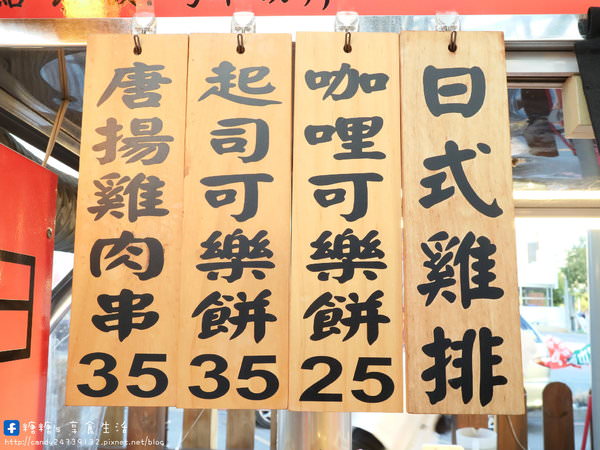 日式雞排
咖哩可樂餅
25
起司可樂餅
35
唐揚雞肉串
35
糖糖's 享食生活
http://candy24739132.pixnet.net/blog